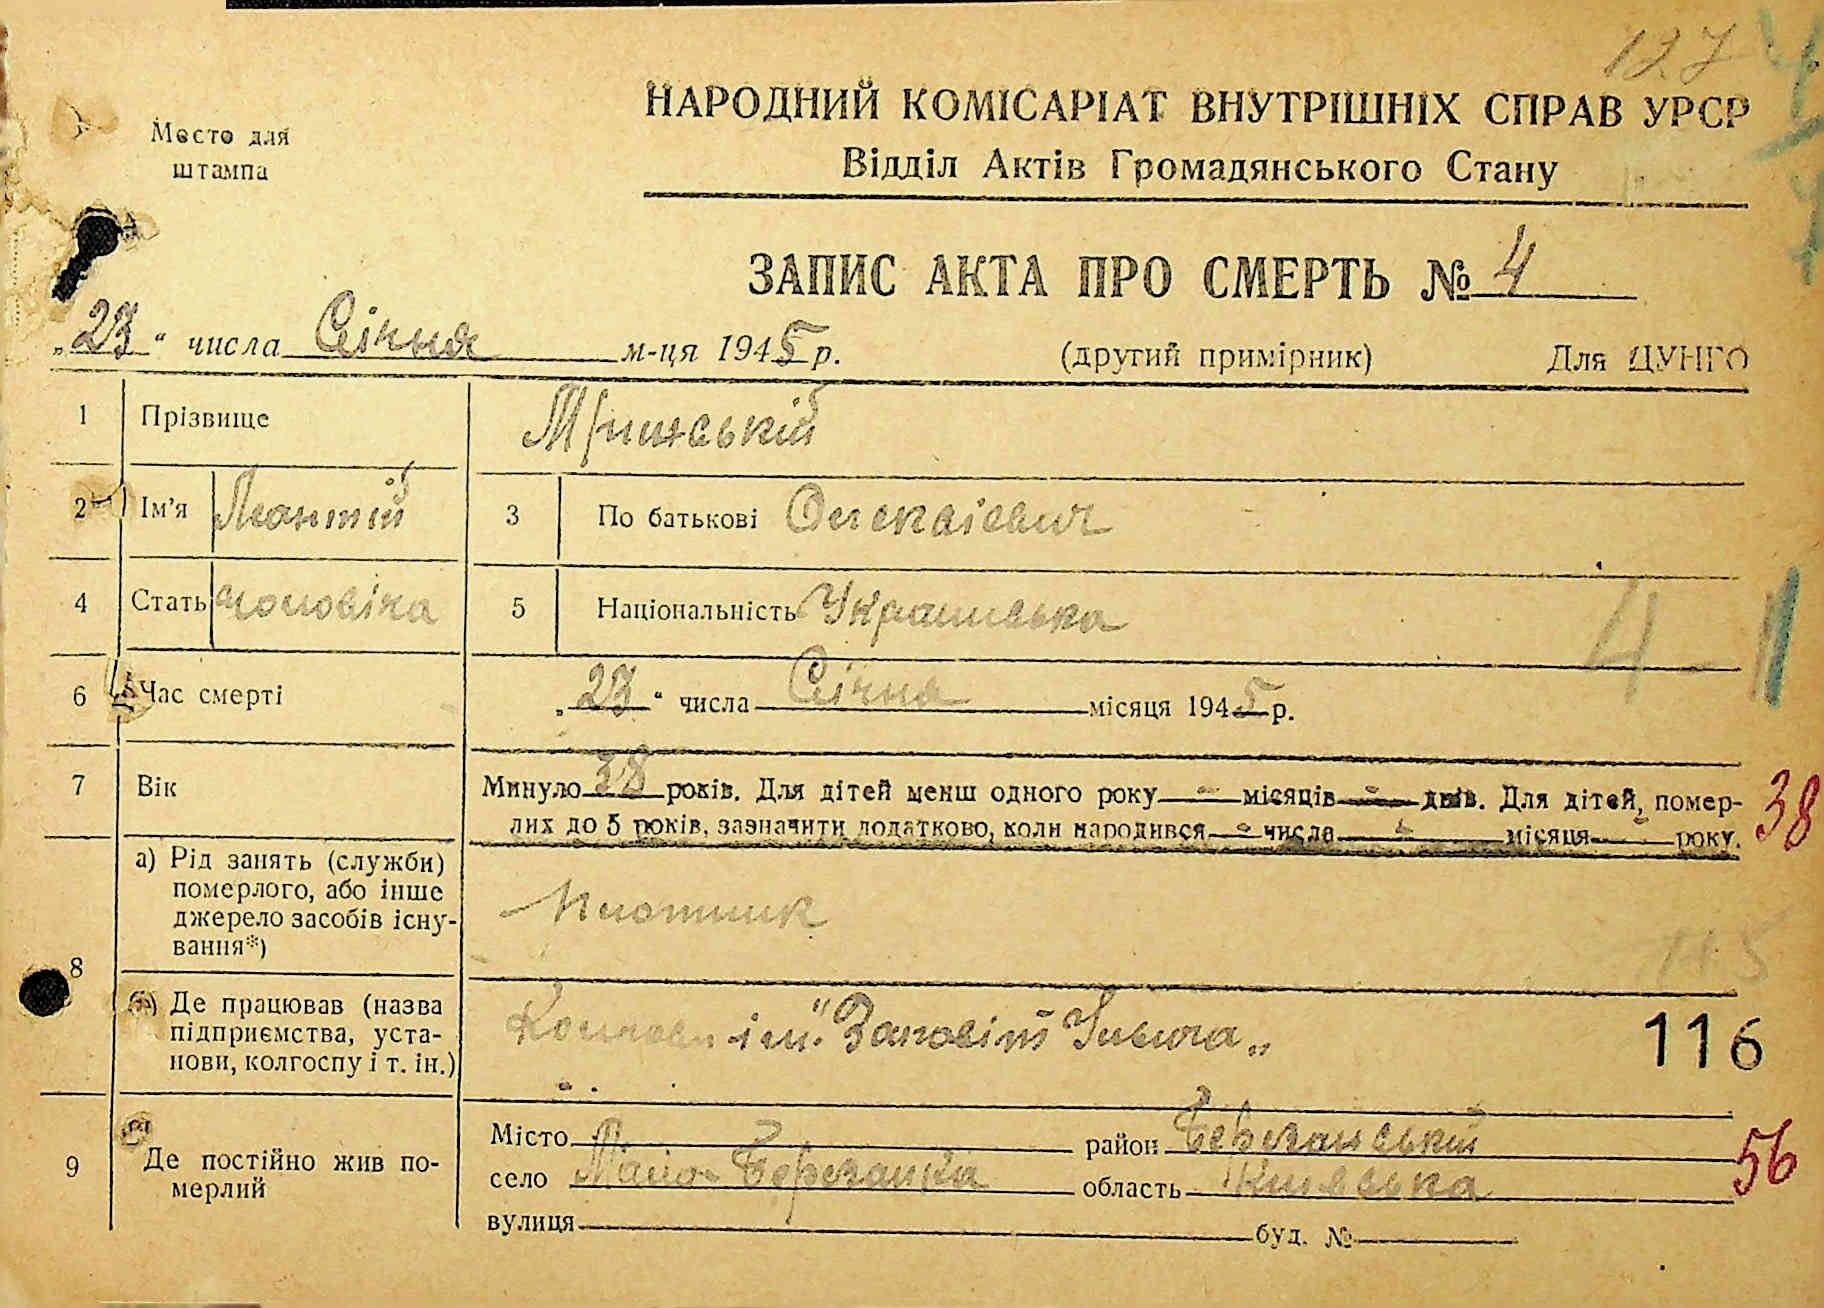 127
Место для
штампа
НАРОДНИЙ КОМІСАРІАТ ВНУТРІШНІХ СПРАВ УРСР
Відділ Актів Громадянського Стану
ЗАПИС АКТА ПРО СМЕРТЬ № 4
„23“ числа Січня м-ця 1945 р.
(другий примірник) Для ЦУНГО
1 Прізвище
2 Ім'я 3 По батькові Олексієвич
4 Стать чоловіча 5 Національність Українська
4-1
6 Час смерті „23“ числа Січня місяця 1945 р.
7 Вік Минуло 38 років. Для дітей менш одного року - місяців - днів. Для дітей, помер-
лих до 5 років, зазначити додатково, коли народився - числа - місяця - року.
38
8 а) Рід занять (служби)
померлого, або інше
джерело засобів існу-
вання*)
Плотник
115
б) Де працював (назва
підприємства, уста-
нови, колгоспу і т. ін.)
ім. "Заповіт Ілліча„
116
9 Де постійно жив по-
мерлий
Місто район Березанський
село Мало-Березанка область Київська
56
вулиця буд. №